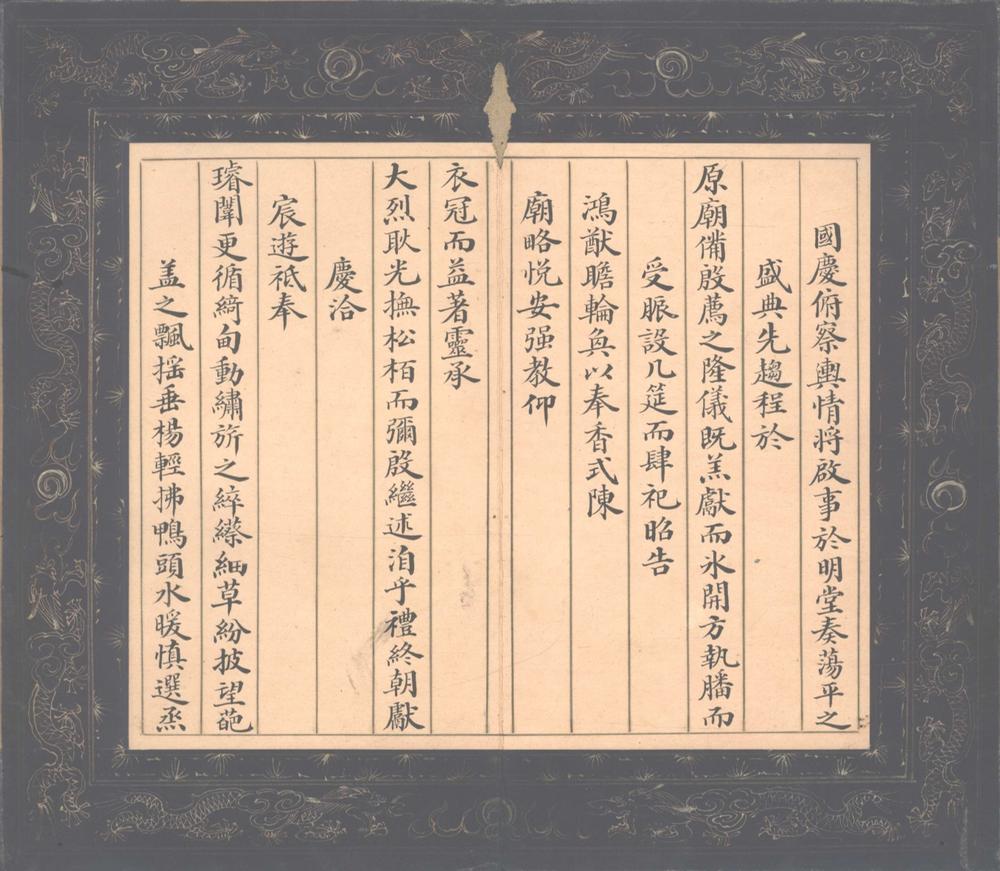 國慶俯察輿情將啟事於明堂奏蕩平之
盛典先趨程於
原廟備殷薦之隆儀既羔獻而氷開方執膰而
受脤設几筵而肆祀昭告
鴻猷瞻輪奐以奉香式陳
廟略悅安强教仰
衣冠而益著靈承
大烈耿光撫松栢而彌殷繼述洎乎禮終朝獻
慶洽
宸遊祗奉
璿闈更循綺甸動繡旂之綷縩細草紛披望葩
盖之飄揺垂楊輕拂鴨頭水暖慎選烝